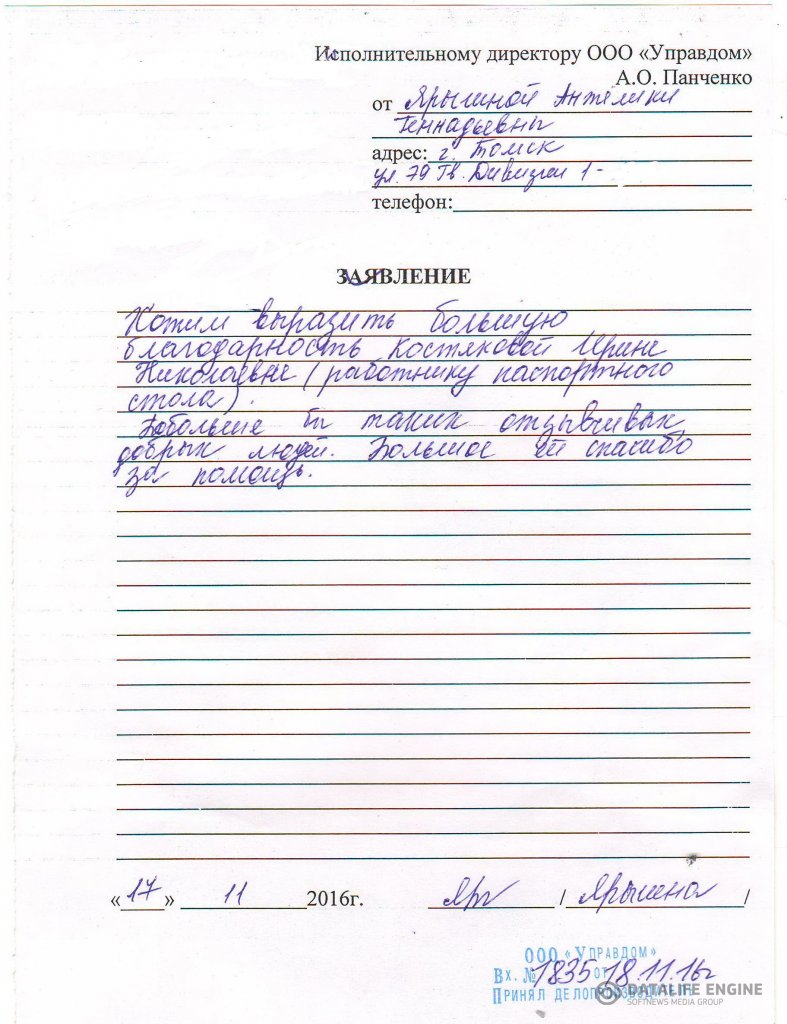 Исполнительному директору ООО «Управдом»
А.О. Панченко
от Ярышной Анжелики
Геннадьевны
адрес: г. Томск
ул. 79 Гв. Дивизии 1-
телефон:
ЗАЯВЛЕНИЕ
Хотим выразить большую
благодарность Костяковой Ирине
Николаевне (работнику паспортного
стола).
Побольше бы таких отзывчивых,
добрых людей. Большое ей спасибо
за помощь.
«17» 11 2016г. Яры / Ярышна /
ООО «Управдом»
Вх. № 1835 от 18.11.16г
Принял делопроизводитель
DATALIFE ENGINE
SOFTNEWS MEDIA GROUP